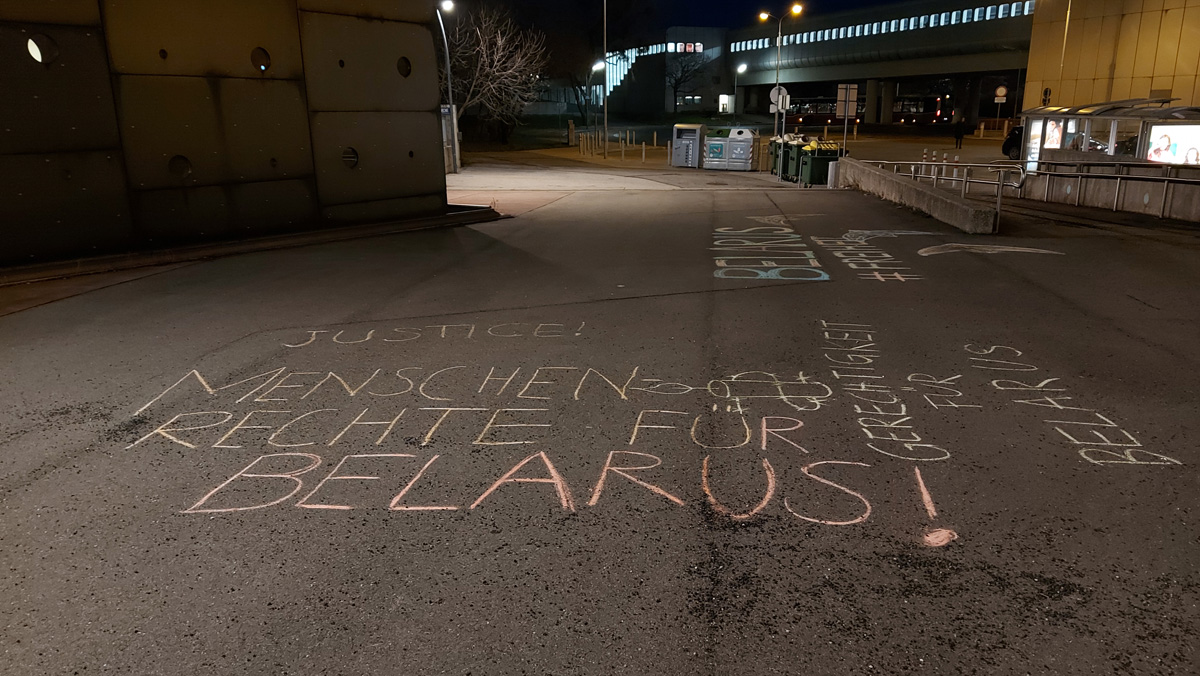 JUSTICE!
MENSCHEN
RECHTE FÜR
BELARUS!
GERECHTIGKEIT
FÜR US
BELARUS